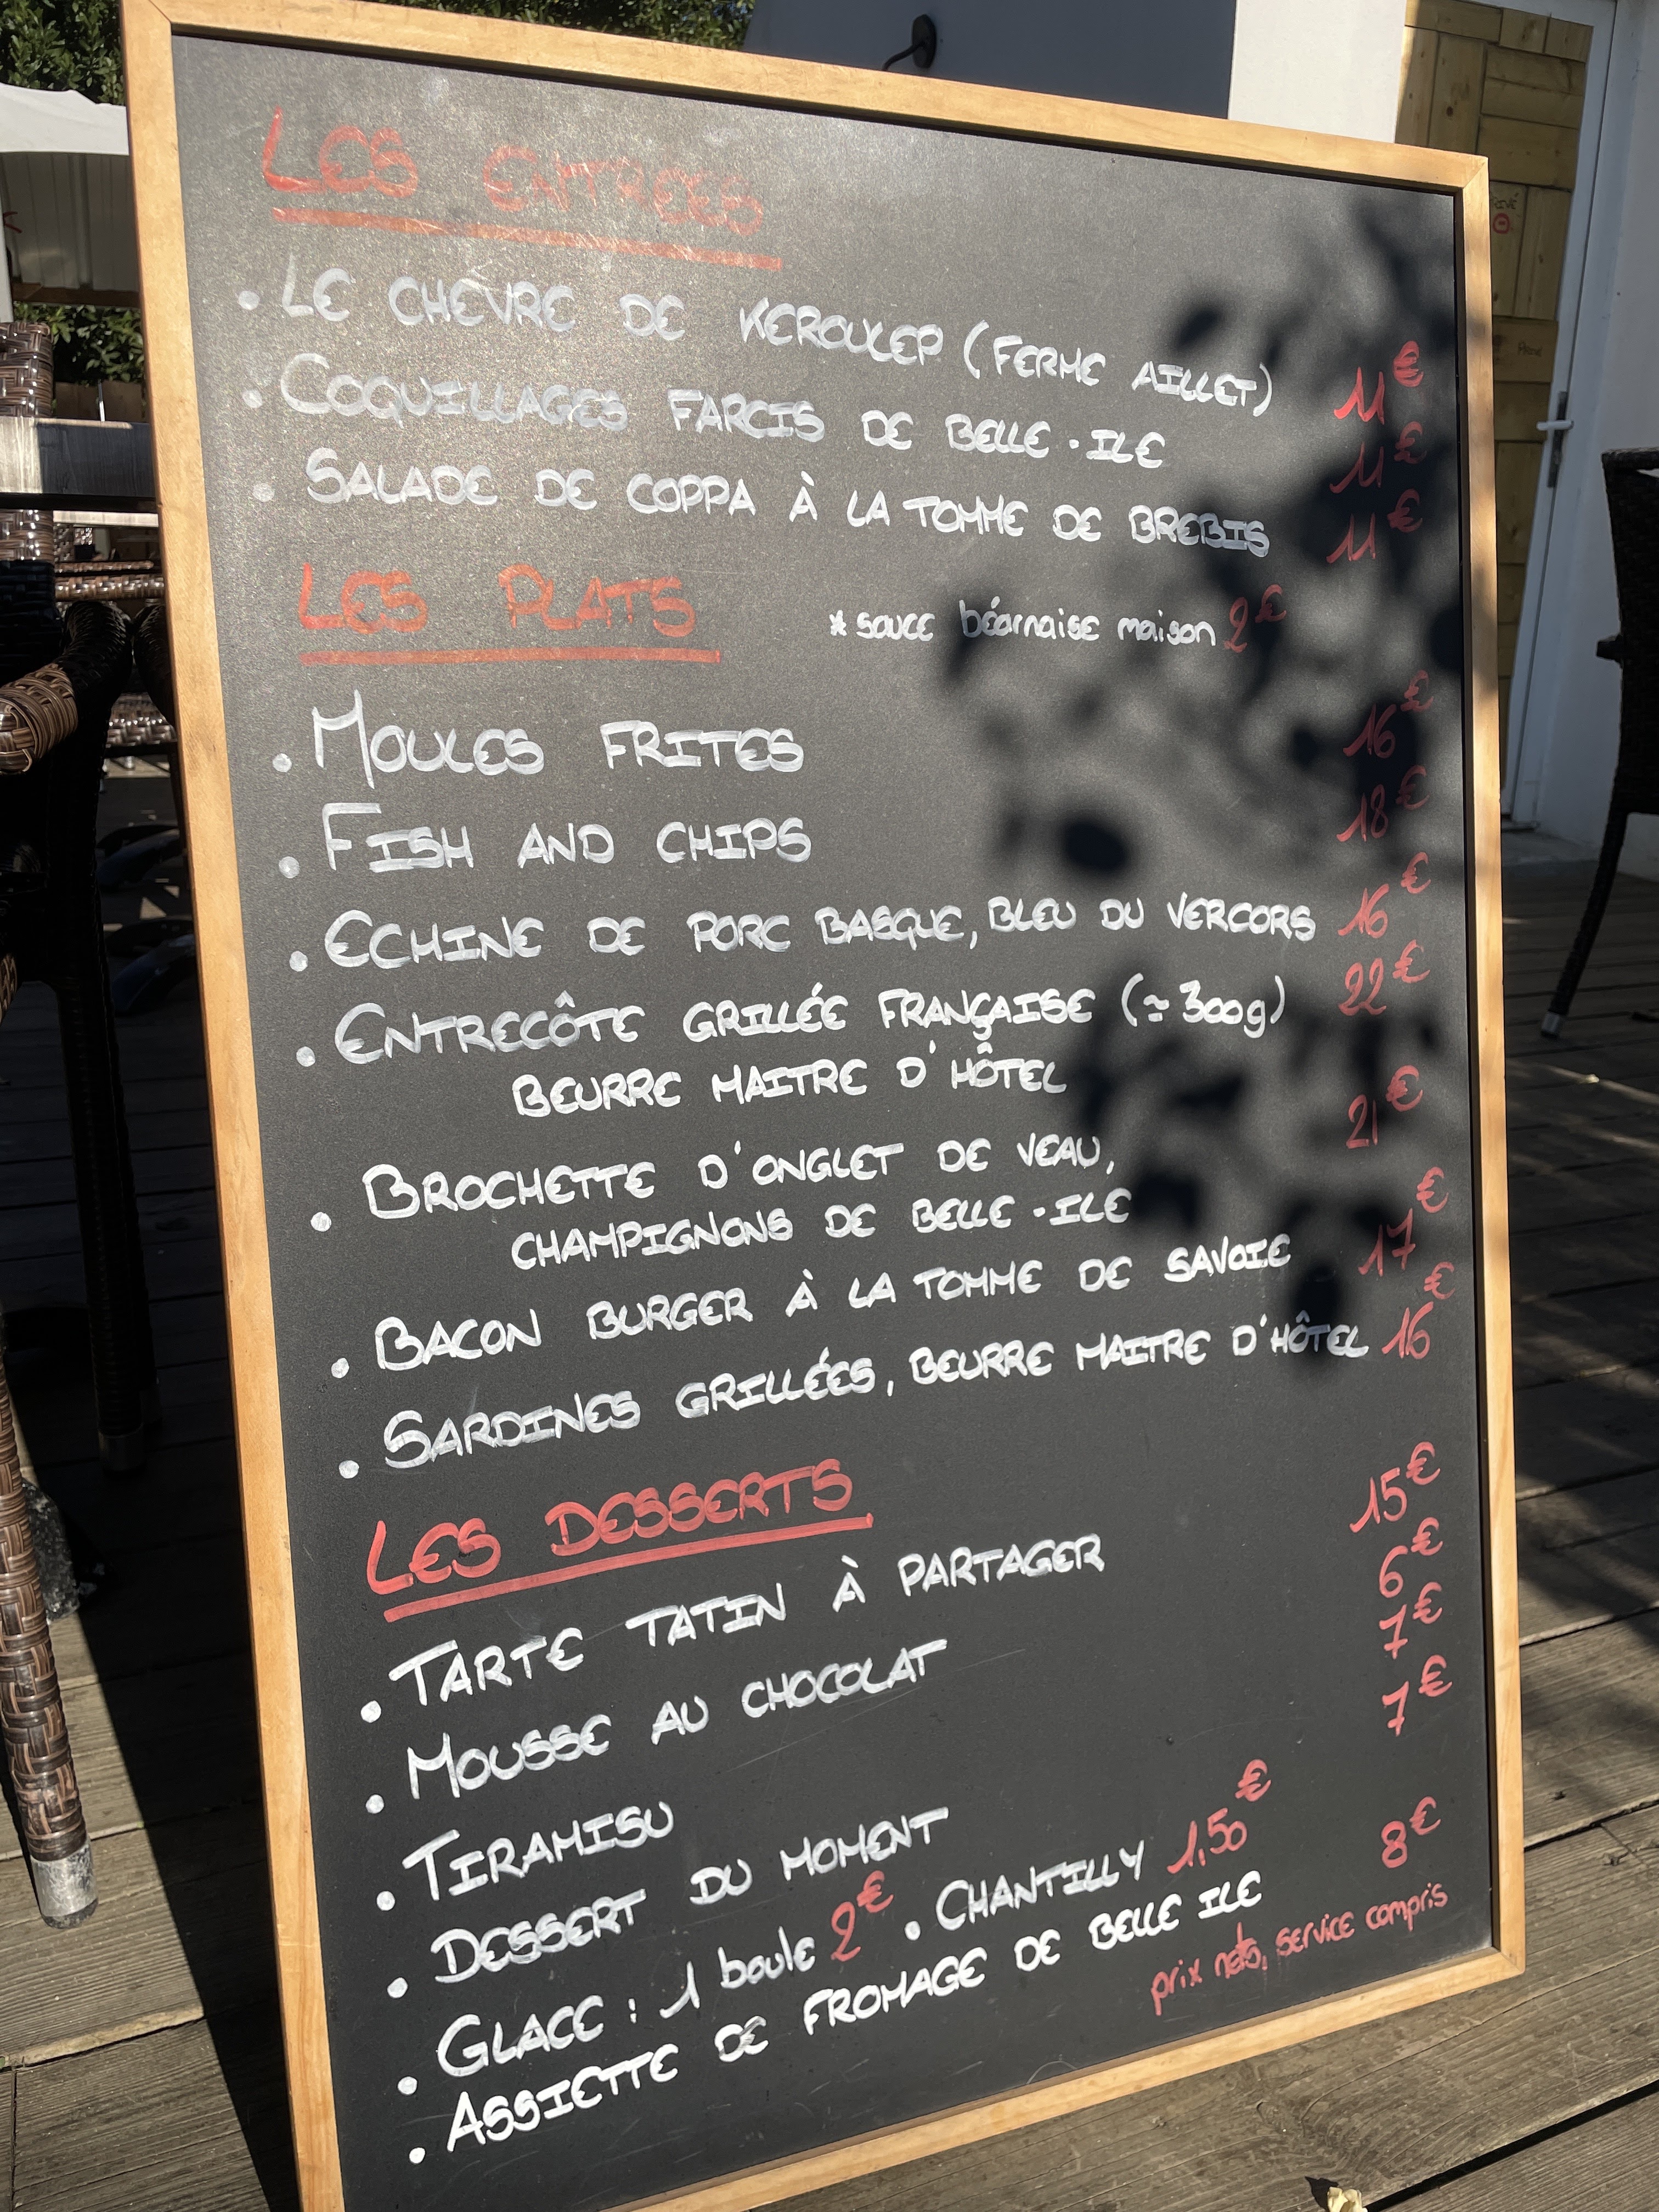 LES ENTREES
. LE CHEVRE DE KEROULEP (FERME AILLET) 11€
. COQUILLAGES FARCIS DE BELLE-ILE 11€
. SALADE DE COPPA À LA TOMME DE BREBIS 11€
LES PLATS * sauce béarnaise maison 2€
. MOULES FRITES 16€
. FISH AND CHIPS 18€
. ECHINE DE PORC BASQUE, BLEU DU VERCORS 16€
. ENTRECÔTE GRILLÉE FRANÇAISE (≃300g) 22€
BEURRE MAITRE D'HÔTEL
. BROCHETTE D'ONGLET DE VEAU, 21€
CHAMPIGNONS DE BELLE-ILE
. BACON BURGER À LA TOMME DE SAVOIE 17€
. SARDINES GRILLÉES, BEURRE MAITRE D'HÔTEL 16€
LES DESSERTS
. TARTE TATIN À PARTAGER 15€
. MOUSSE AU CHOCOLAT 6€
. TIRAMISU 7€
. DESSERT DU MOMENT 7€
. GLACE : 1 boule 2€ . CHANTILLY 1,50€
. ASSIETTE DE FROMAGE DE BELLE ILE 8€
prix nets, service compris